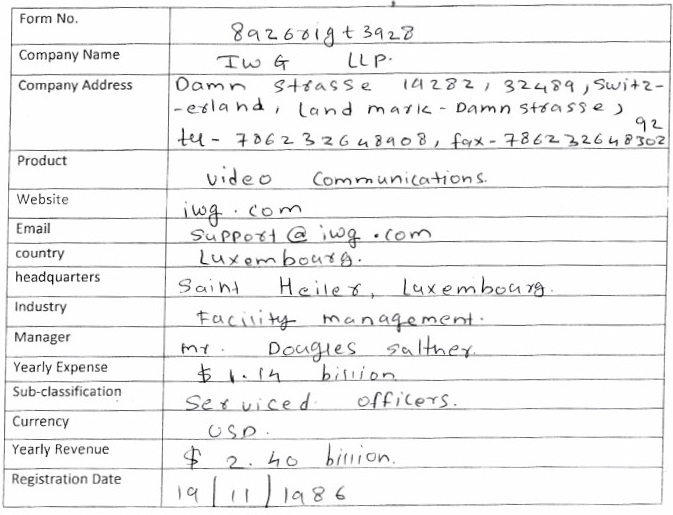 Form No. 8926rigt3928
Company Name IWG LLP.
Company Address Damn strasse 14282, 32489, Switz-
-erland, Land mark - Damn strasse,
92
tel - 786232648908, fax - 786232648302
Product video communications.
Website iwg.com
Email support@iwg.com
country Luxembourg.
headquarters Saint Heiler, Luxembourg.
Industry Facility management.
Manager mr. Dougles saltner.
Yearly Expense $ 1.14 billion
Sub-classification Serviced officers.
Currency USD.
Yearly Revenue $ 2.40 billion.
Registration Date 19/11/1986